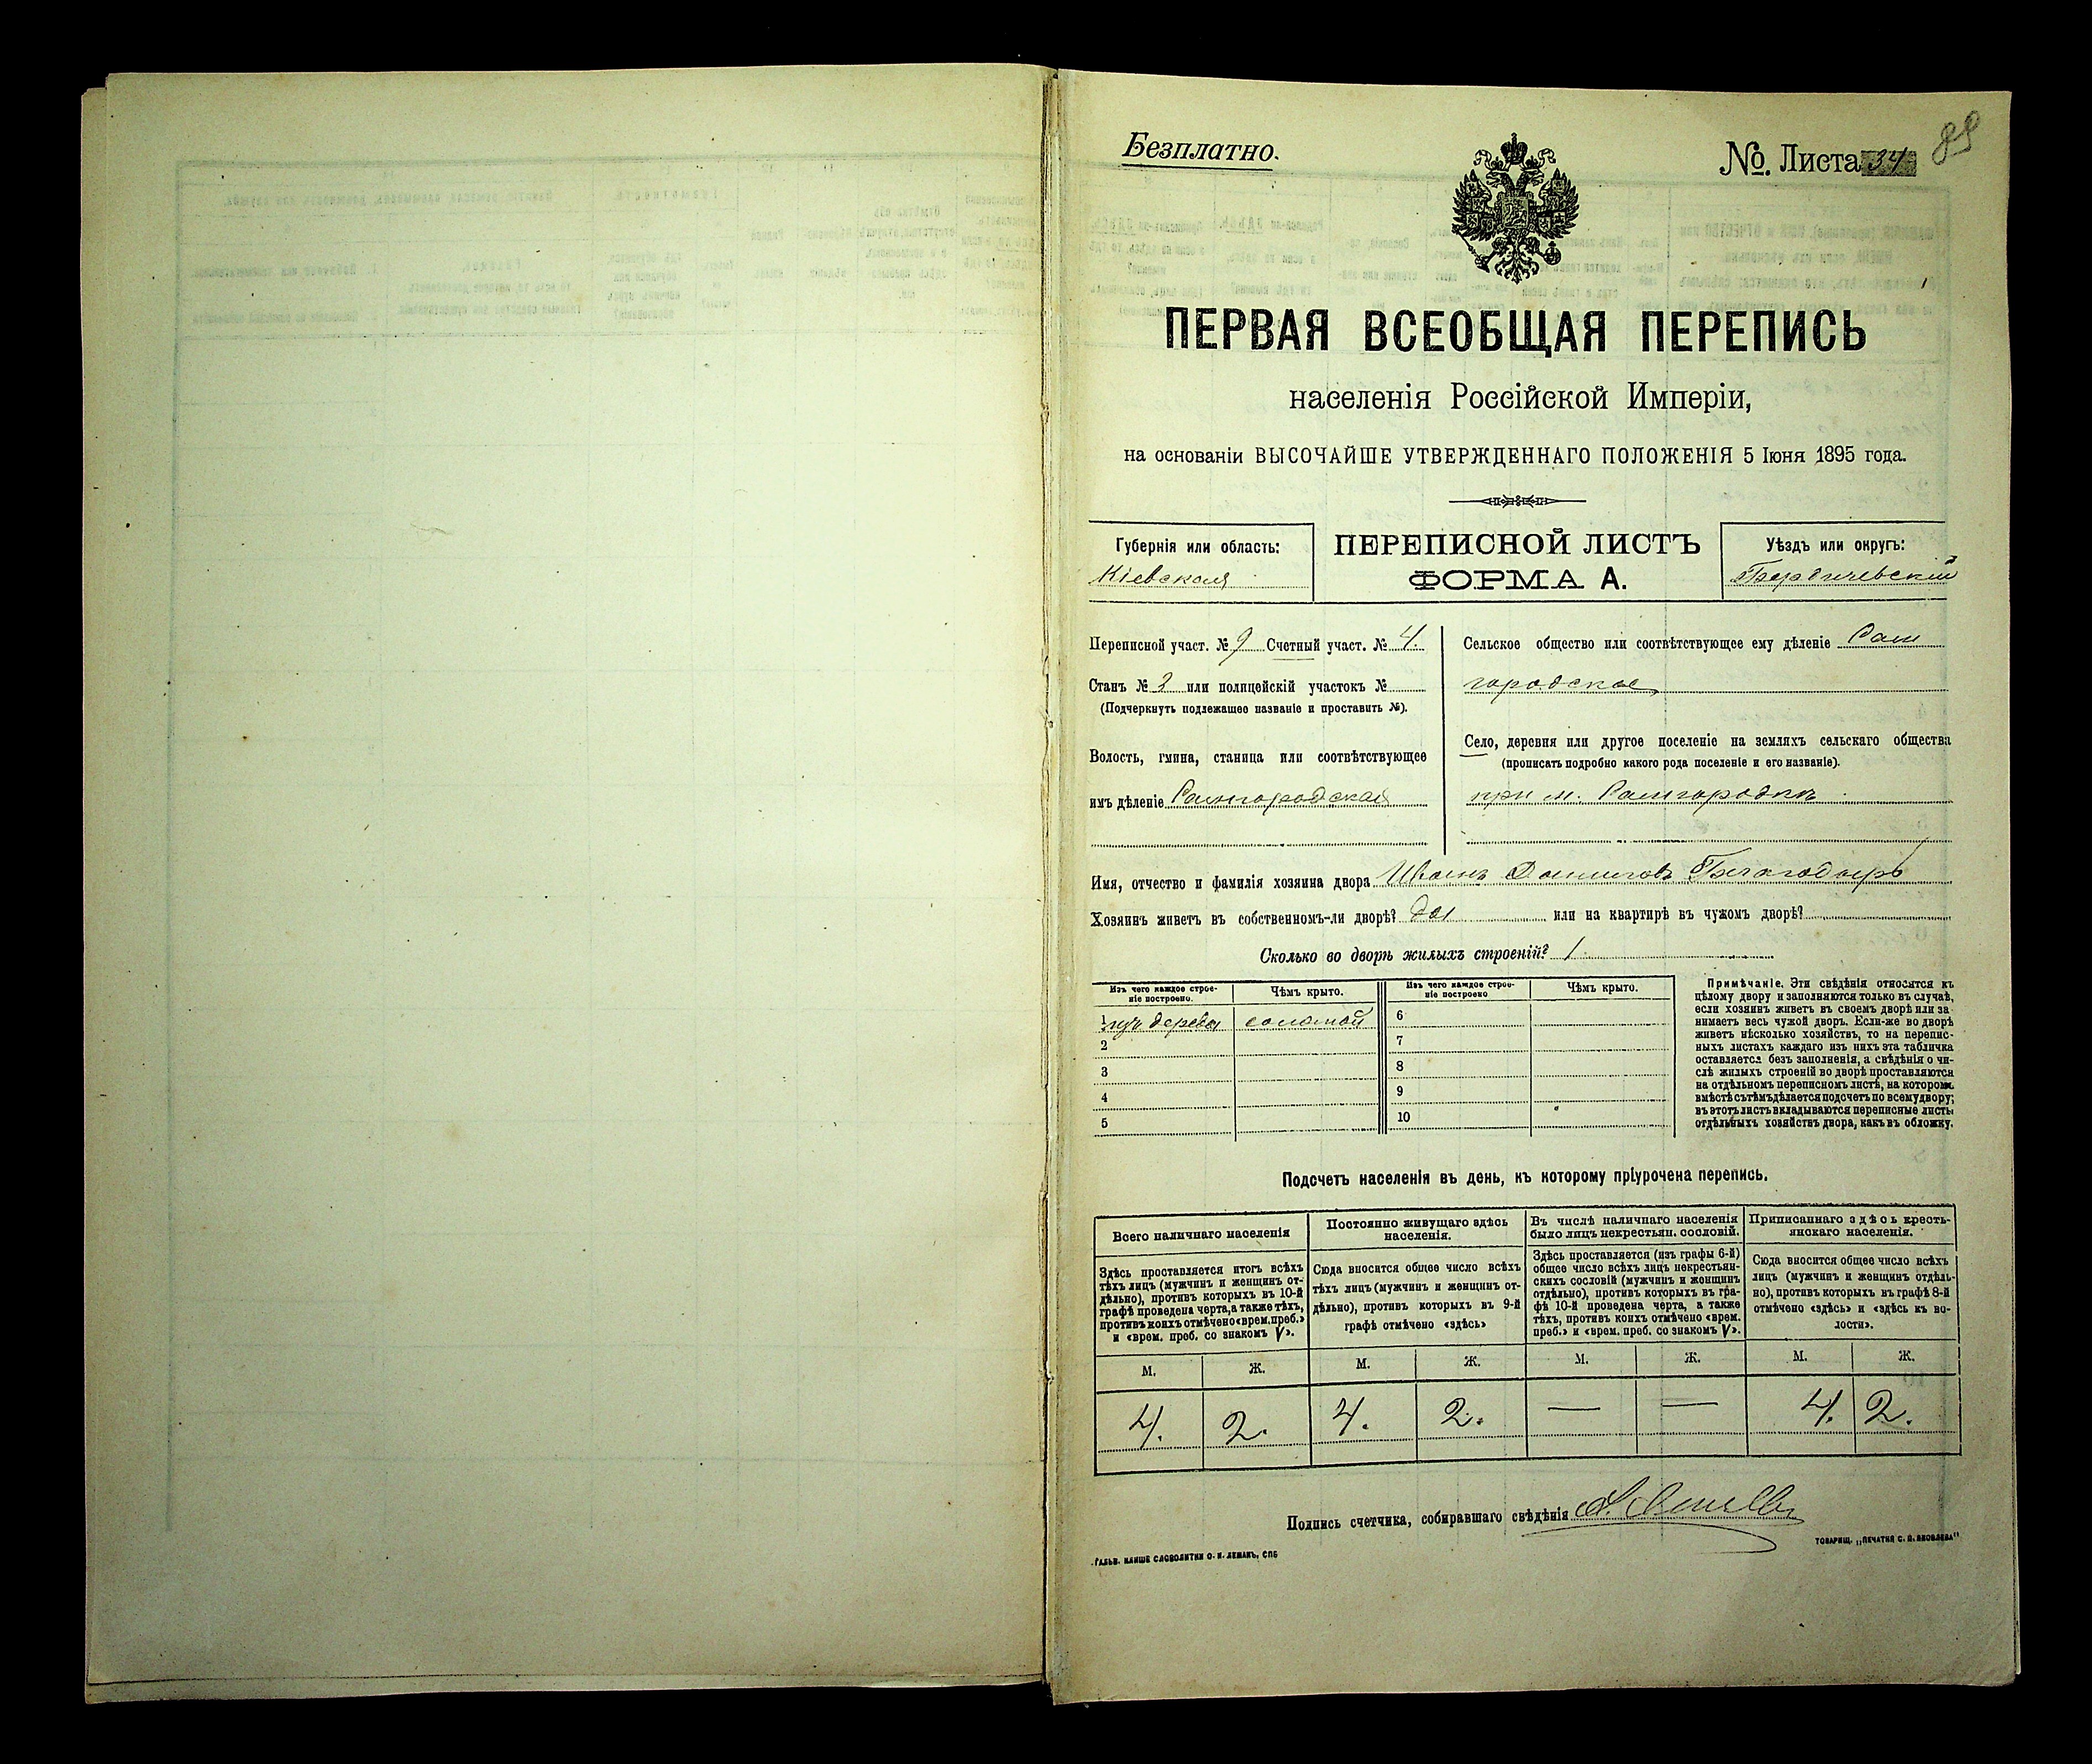 Безплатно.
№. Листа 34
89
ПЕРВАЯ ВСЕОБЩАЯ ПЕРЕПИСЬ
населенія Россійской Имперіи,
на основаніи ВЫСОЧАЙШЕ УТВЕРЖДЕННАГО ПОЛОЖЕНІЯ 5 Іюня 1895 года.
Губернія или область:
Кіевская
ПЕРЕПИСНОЙ ЛИСТЪ
ФОРМА А.
Уѣздъ или округъ:
Бердичевскій
Переписной участ. № 9 Счетный участ. № 4.
Станъ № 2 или полицейскій участокъ №
(Подчеркнуть подлежащее названіе и проставить №).
Волость, гмина, станица или соотвѣтствующее
имъ дѣленіе Самгородская
Сельское общество или соотвѣтствующее ему дѣленіе Сам
городское
Село, деревня или другое поселеніе на земляхъ сельскаго общества
(прописать подробно какого рода поселеніе и его названіе).
при м. Самгородкѣ
Имя, отчество и фамилія хозяина двора Иванъ
Хозяинъ живетъ въ собственномъ-ли дворѣ? да или на квартирѣ въ чужомъ дворѣ?
Сколько во дворѣ жилыхъ строеній? 1
Изъ чего каждое строе-
ніе построено.
Чѣмъ крыто.
Изъ чего каждое строе-
ніе построено
Чѣмъ крыто.
1 изъ дерева соломой 6
2 7
3 8
4 9
5 10
Примѣчаніе. Эти свѣдѣнія относятся къ
цѣлому двору и заполняются только въ случаѣ,
если хозяинъ живетъ въ своемъ дворѣ или за
нимаетъ весь чужой дворъ. Если-же во дворѣ
живетъ нѣсколько хозяйствъ, то на перепис-
ныхъ листахъ каждаго изъ нихъ эта табличка
оставляется безъ заполненія, а свѣдѣнія о чи-
слѣ жилыхъ строеній во дворѣ проставляются
на отдѣльномъ переписномъ листѣ, на которомъ
вмѣстѣ съ тѣмъ дѣлается подсчетъ по всему двору;
въ этотъ листъ вкладываются переписные листы
отдѣльныхъ хозяйствъ двора, какъ въ обложку.
Подсчетъ населенія въ день, къ которому пріурочена перепись.
Всего наличнаго населенія
Здѣсь проставляется итогъ всѣхъ
тѣхъ лицъ (мужчинъ и женщинъ от-
дѣльно), противъ которыхъ въ 10-й
графѣ проведена черта, а также тѣхъ,
противъ коихъ отмѣчено «врем. преб.»
и «врем. преб. со знакомъ V».
Постоянно живущаго здѣсь
населенія.
Сюда вносится общее число всѣхъ
тѣхъ лицъ (мужчинъ и женщинъ от-
дѣльно), противъ которыхъ въ 9-й
графѣ отмѣчено «здѣсь»
Въ числѣ наличнаго населенія
было лицъ некрестьян. сословій.
Здѣсь проставляется (изъ графы 6-й)
общее число всѣхъ лицъ некрестьян-
скихъ сословій (мужчинъ и женщинъ
отдѣльно), противъ которыхъ въ гра-
фѣ 10-й проведена черта, а также
тѣхъ, противъ коихъ отмѣчено «врем.
преб.» и «врем. преб. со знакомъ V».
Приписаннаго здѣсь кресть-
янскаго населенія.
Сюда вносится общее число всѣхъ
лицъ (мужчинъ и женщинъ отдѣль-
но), противъ которыхъ въ графѣ 8-й
отмѣчено «здѣсь» и «здѣсь къ во-
лости».
М. Ж. М. Ж. М. Ж. М. Ж.
4. 2. 4. 2. — — 4. 2.
Подпись счетчика, собиравшаго свѣдѣнія
ГАЛЬВ. КЛИШЕ СЛОВОЛИТНИ О. И. ЛЕМАНЪ, СПБ
ТОВАРИЩ. „ПЕЧАТНЯ С. П. ЯКОВЛЕВА"